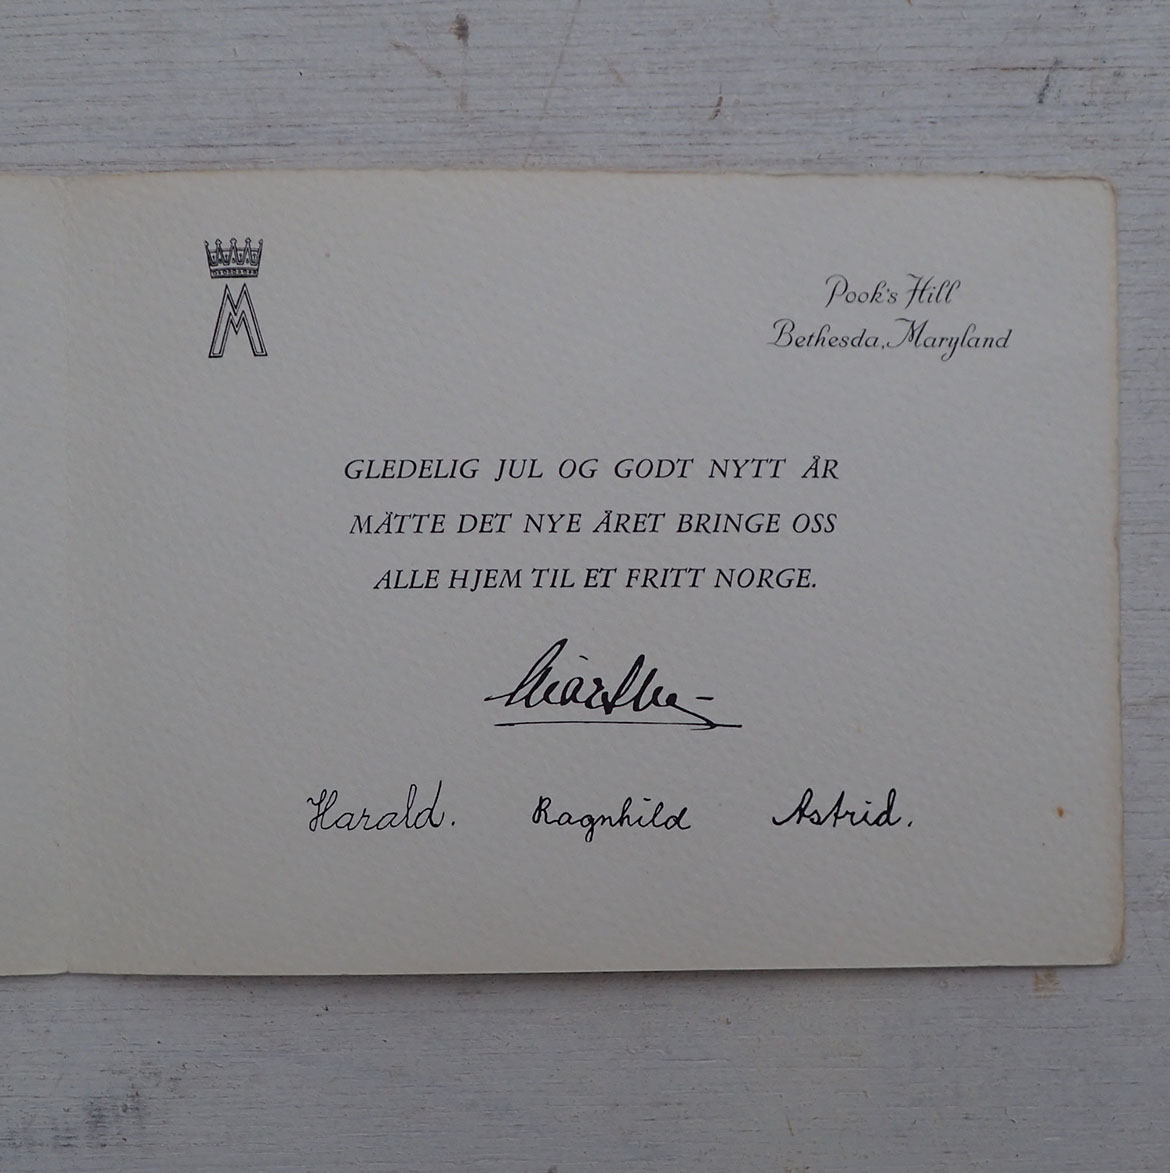 M
Pook's Hill
Bethesda, Maryland
GLEDELIG JUL OG GODT NYTT ÅR
MÅTTE DET NYE ÅRET BRINGE OSS
ALLE HJEM TIL ET FRITT NORGE.
Märtha
Harald. Ragnhild Astrid.